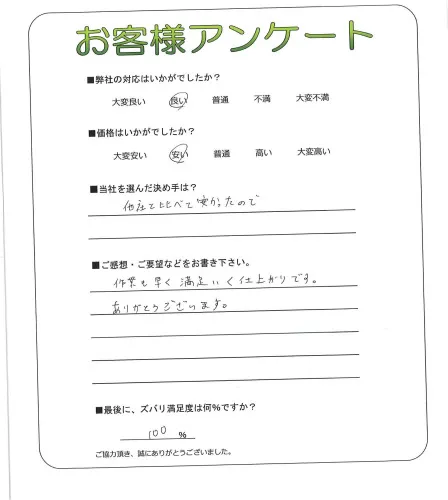 お客様アンケート
■弊社の対応はいかがでしたか？
大変良い 良い 普通 不満 大変不満
■価格はいかがでしたか？
大変安い 安い 普通 高い 大変高い
■当社を選んだ決め手は？
他社と比べて安かったので
■ご感想・ご要望などをお書き下さい。
作業も早く満足いく仕上がりです。
ありがとうございます。
■最後に、ズバリ満足度は何％ですか？
100 ％
ご協力頂き、誠にありがとうございました。